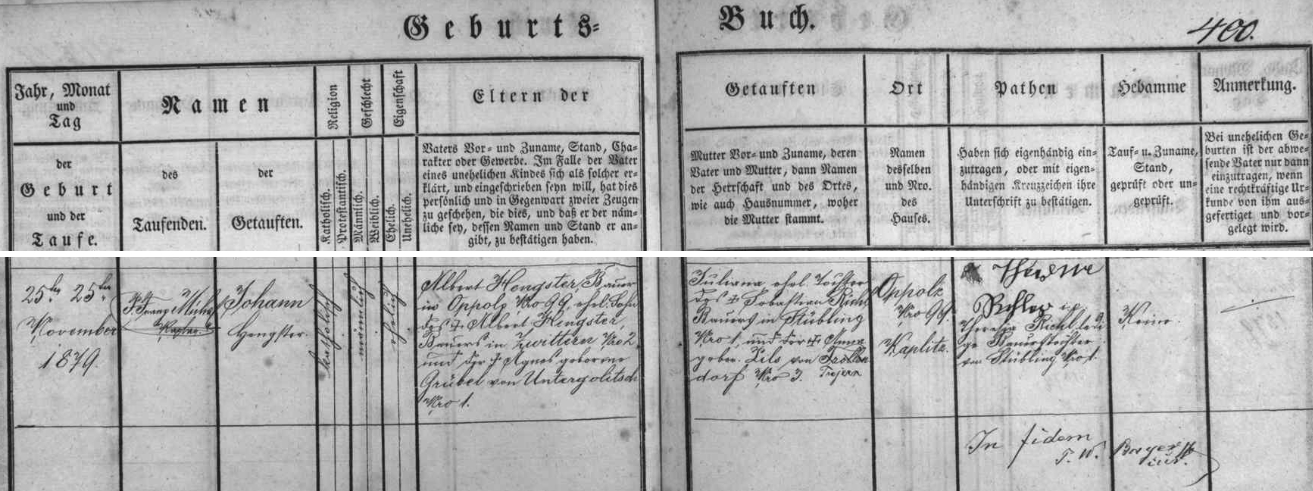 Geburts-
Buch.
400.
Jahr, Monat
und
Tag
der
Geburt
und der
Taufe.
Namen
des
Taufenden.
der
Getauften.
Religion
Katholisch.
Protestantisch.
Geschlecht
Männlich.
Weiblich.
Eigenschaft
Ehelich.
Unehelich.
Eltern der
Vaters Vor- und Zuname, Stand, Cha-
rakter oder Gewerbe. Im Falle der Vater
eines unehelichen Kindes sich als solcher er-
klärt, und eingeschrieben seyn will, hat dies
persönlich und in Gegenwart zweier Zeugen
zu geschehen, die dies, und daß er der näm-
liche sey, dessen Namen und Stand er an-
gibt, zu bestätigen haben.
Getauften
Mutter Vor- und Zuname, deren
Vater und Mutter, dann Namen
der Herrschaft und des Ortes,
wie auch Hausnummer, woher
die Mutter stammt.
Ort
Namen
desselben
und Nro.
des
Hauses.
Pathen
Haben sich eigenhändig ein-
zutragen, oder mit eigen-
händigen Kreuzzeichen ihre
Unterschrift zu bestätigen.
Hebamme
Tauf- u. Zuname,
Stand,
geprüft oder un-
geprüft.
Anmerkung.
Bei unehelichen Ge-
burten ist der abwe-
sende Vater nur dann
einzutragen, wenn
eine rechtkräftige Ur-
kunde von ihm aus-
gefertiget und vor-
gelegt wird.
25ten 25ten
November
1879.
Franz
Kaplan
Johann
Hengster.
katholisch
männlich
ehelich
Albert Hengster, Bauer
in Oppolz Nro 99, ehel. Sohn
des † Albert Hengster,
Bauers in Zwittern Nro 2
und der † Agnes geborene
Grübel von Untergolitsch
Nro 1.
Juliana, ehel. Tochter
des † Sebastian
Bauers in Stübling
Nro 1, und der † Anna
gebor. von
dorf Nro 3.
Oppolz
Nro 99.
Kaplitz.
Theresia
ledi-
ge Bauerstochter
von Stübling Nro 1.
Keine
In fidem